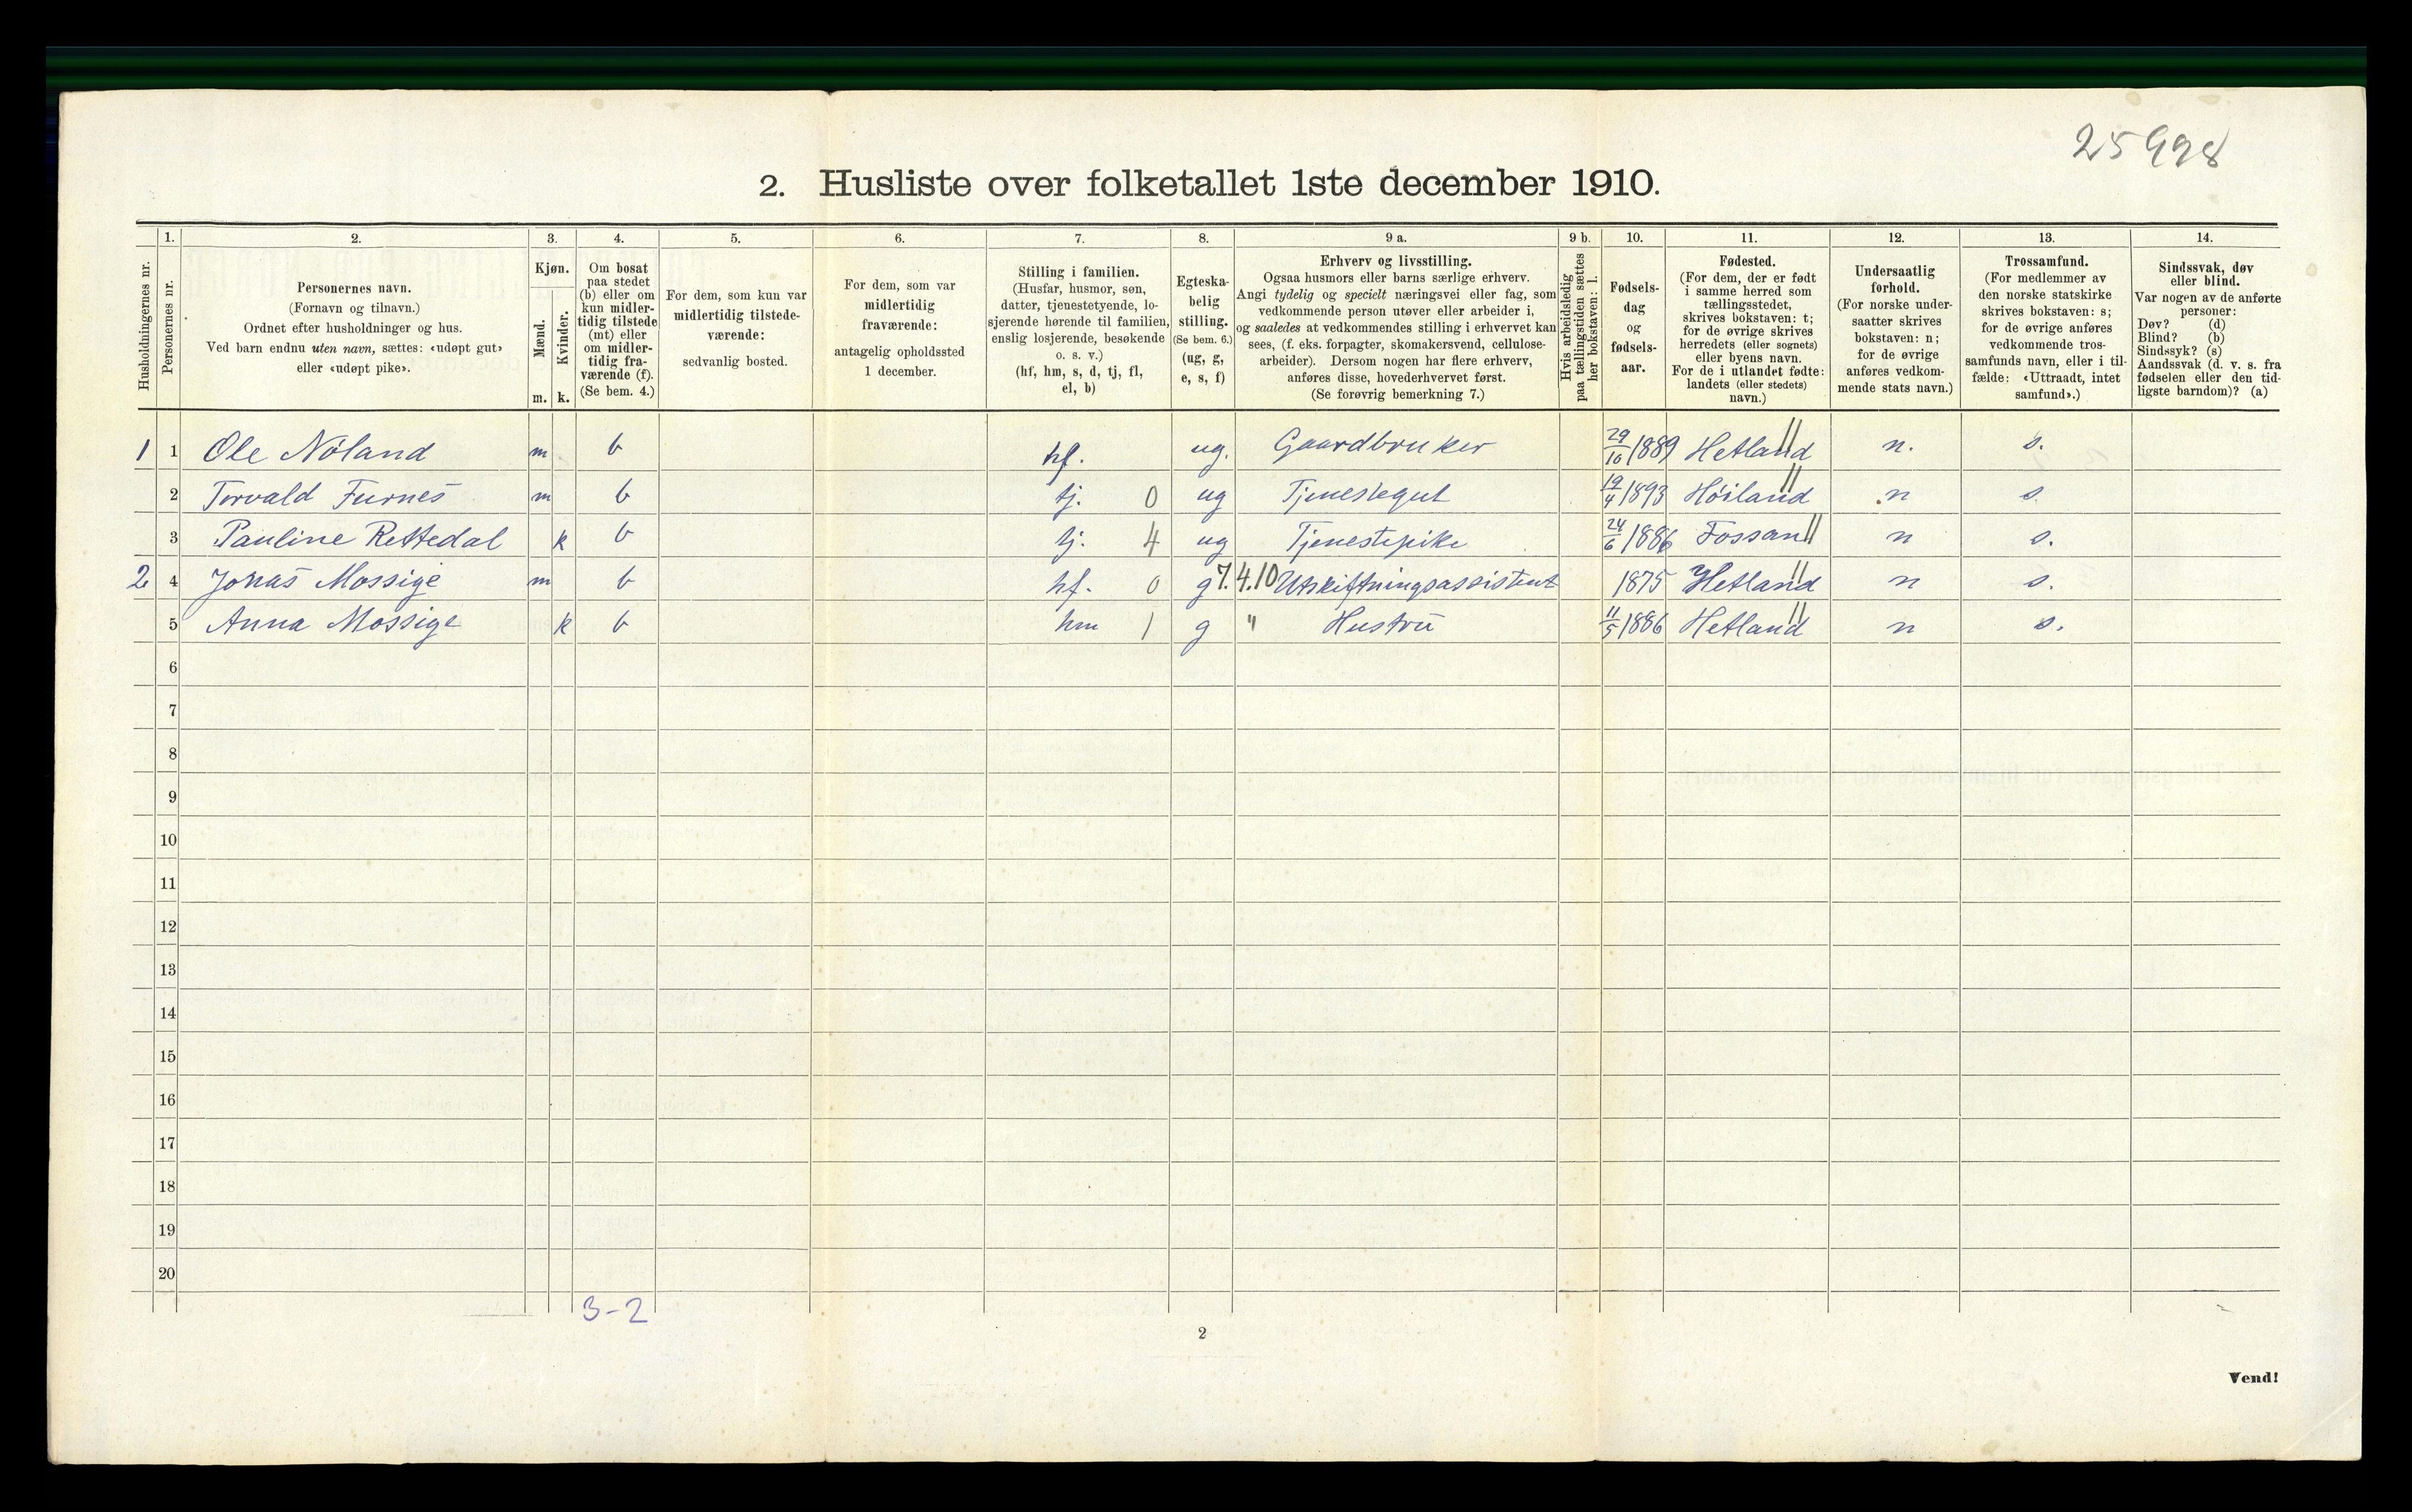 25998
2. Husliste over folketallet 1ste december 1910.
Husholdningernes nr.
1. Personernes nr.
2. Personernes navn.
(Fornavn og tilnavn.)
Ordnet efter husholdninger og hus.
Ved barn endnu uten navn, sættes: «udøpt gut»
eller «udøpt pike».
3. Kjøn.
Mænd. Kvinder.
m. k.
4. Om bosat
paa stedet
(b) eller om
kun midler-
tidig tilstede
(mt) eller
om midler-
tidig fra-
værende (f).
(Se bem. 4.)
5. For dem, som kun var
midlertidig tilstede-
værende:
sedvanlig bosted.
6. For dem, som var
midlertidig
fraværende:
antagelig opholdssted
1 december.
7. Stilling i familien.
(Husfar, husmor, søn,
datter, tjenestetyende, lo-
sjerende hørende til familien,
enslig losjerende, besøkende
o. s. v.)
(hf, hm, s, d, tj, fl,
el, b)
8. Egteska-
belig
stilling.
(Se bem. 6.)
(ug, g,
e, s, f)
9 a. Erhverv og livsstilling.
Ogsaa husmors eller barns særlige erhverv.
Angi tydelig og specielt næringsvei eller fag, som
vedkommende person utøver eller arbeider i,
og saaledes at vedkommendes stilling i erhvervet kan
sees, (f. eks. forpagter, skomakersvend, cellulose-
arbeider). Dersom nogen har flere erhverv,
anføres disse, hovederhvervet først.
(Se forøvrig bemerkning 7.)
9 b. Hvis arbeidsledig
paa tællingstiden sættes
her bokstaven: l.
10. Fødsels-
dag
og
fødsels-
aar.
11. Fødested.
(For dem, der er født
i samme herred som
tællingsstedet,
skrives bokstaven: t;
for de øvrige skrives
herredets (eller sognets)
eller byens navn.
For de i utlandet fødte:
landets (eller stedets)
navn.)
12. Undersaatlig
forhold.
(For norske under-
saatter skrives
bokstaven: n;
for de øvrige
anføres vedkom-
mende stats navn.)
13. Trossamfund.
(For medlemmer av
den norske statskirke
skrives bokstaven: s;
for de øvrige anføres
vedkommende tros-
samfunds navn, eller i til-
fælde: «Uttraadt, intet
samfund».)
14. Sindssvak, døv
eller blind.
Var nogen av de anførte
personer:
Døv? (d)
Blind? (b)
Sindssyk? (s)
Aandssvak (d. v. s. fra
fødselen eller den tid-
ligste barndom)? (a)
1 1 Ole Nóland m b hf. ug. Gaardbruker 29/10 1889 Hetland n. s.
2 Torvald Furnes m b tj. 0 ug Tjenestegut 19/4 1893 Höiland n s.
3 Pauline Rettedal k b tj. 4 ug Tjenestepike 24/6 1886 Fossan n s.
2 4 Jonas Mossige m b hf. 0 g 7.4.10 Utskiftningsassistent 1875 Hetland n s.
5 Anna Mossige k b hm 1 g " Hustru 11/5 1886 Hetland n s.
6
7
8
9
10
11
12
13
14
15
16
17
18
19
20
3-2
2
Vend!